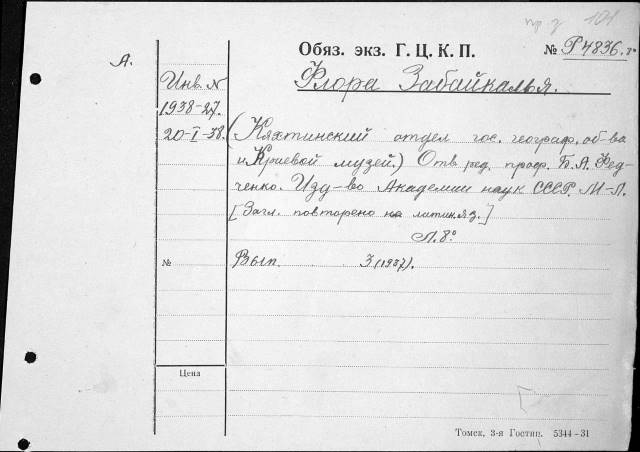 пр з 101
А.
Обяз. экз. Г. Ц. К. П. № P4836.
Флора Забайкалья.
Инв. N
1938-27.
20-I-38.
(Кяхтинский отдел гос. географ. об-ва
и Краевой музей.) Отв. ред. проф. Б. А. Фед-
ченко. Изд-во Академии наук СССР. М-Л.
[Загл. повторено на латин. яз.]
Л. 8°
№ Вып. 3 (1937).
Цена
Томск, 3-я Гостип. 5344-31